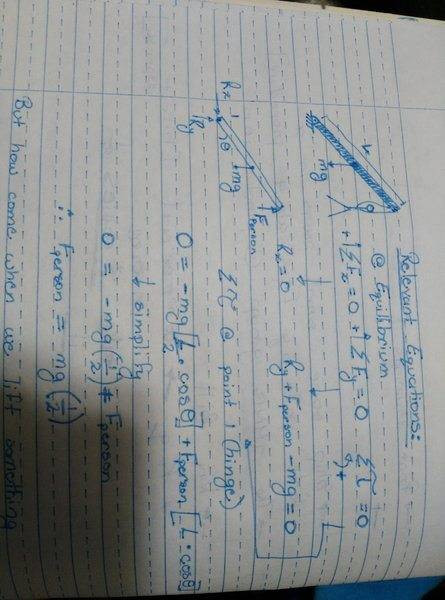 Relevant Equations:
@ Equilibrium
+ΣFx = 0 +ΣFy = 0 Στ = 0
L
mg
Rx = 0 Ry + Fperson - mg = 0
Στ @ point 1 (hinge)
Rx 1
Ry
θ
mg
Fperson
0 = -mg[L/2 · cosθ] + Fperson [L · cosθ]
↓ simplify
0 = -mg(1/2) + Fperson
∴ Fperson = mg(1/2)
But how come when we lift something